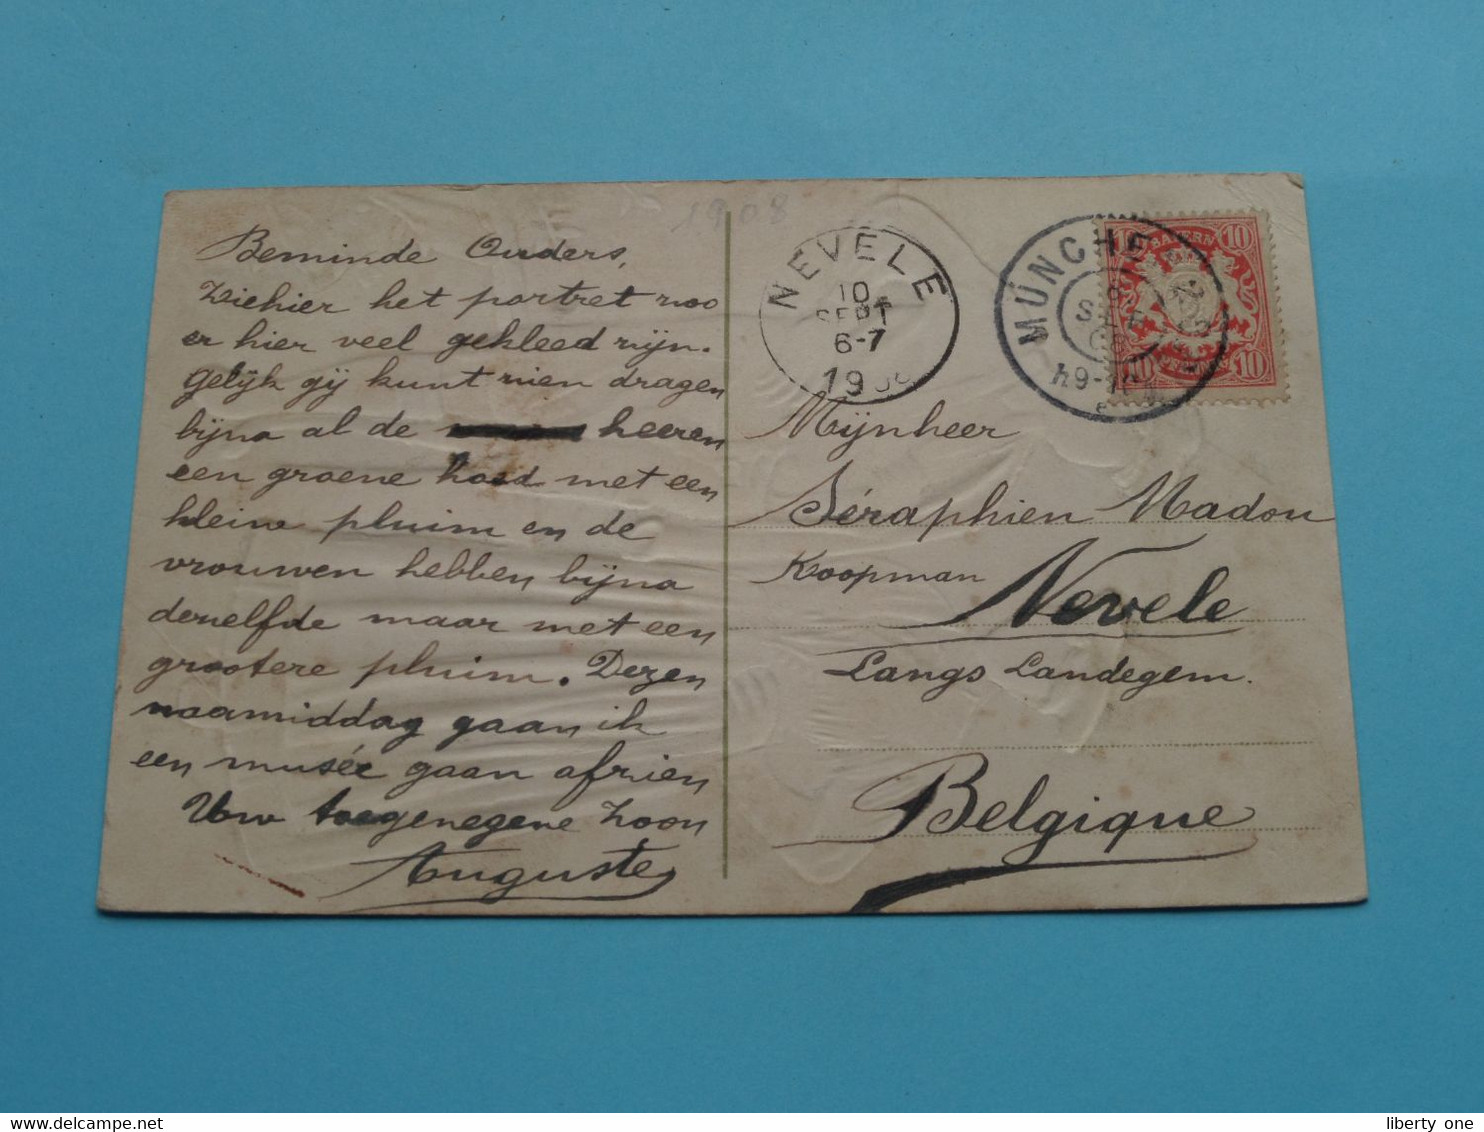 1908
Beminde Ouders,
Ziehier het portret zoo
er hier veel gekleed zijn.
Gelijk gij kunt zien dragen
bijna al de heeren
een groene hoed met een
kleine pluim en de
vrouwen hebben bijna
dezelfde maar met een
grootere pluim. Dezen
naamiddag gaan ik
een musée gaan afzien
Uw toegenegene Zoon
Auguste
NEVELE
10
SEPT
6-7
19
MÜNCHEN
SEP
BAYERN
10 10
10 10
Mijnheer
Séraphien Madou
Koopman Nevele
Langs Landegem.
Belgique
liberty one